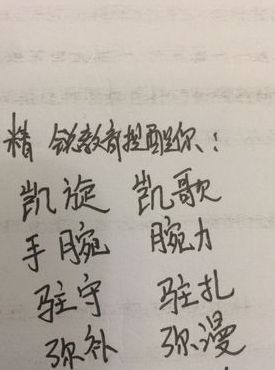 精锐教育提醒你：
凯旋 凯歌
手腕 腕力
驻守 驻扎
弥补 弥漫